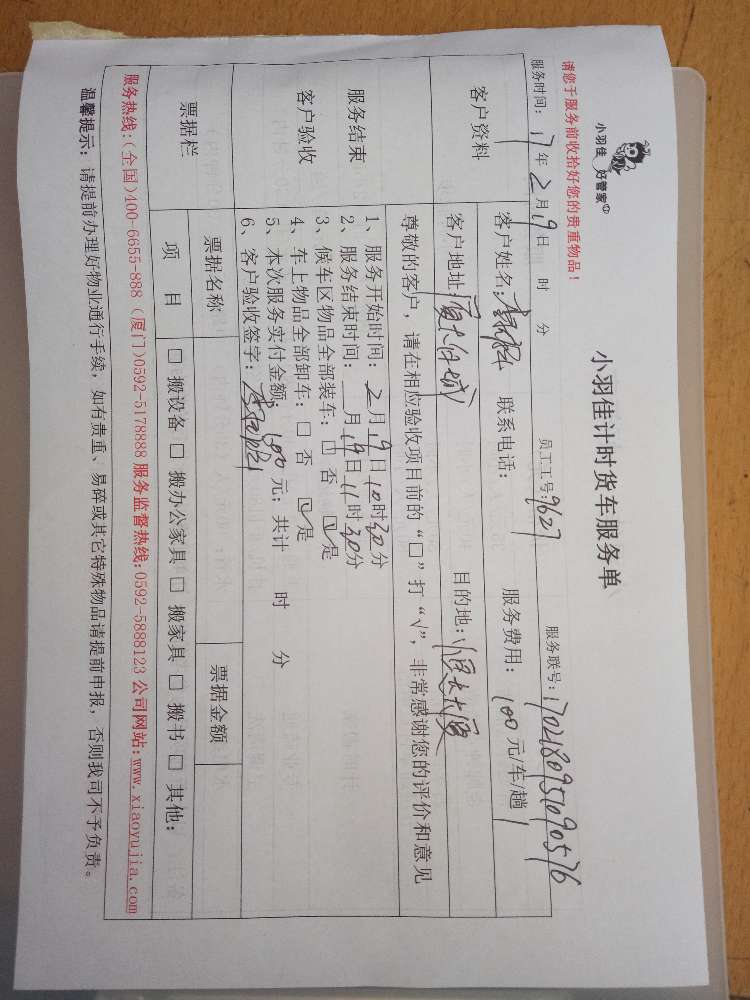 小羽佳 好管家
小羽佳计时货车服务单
请您于服务前收拾好您的贵重物品！
服务时间：17年2月19日 时 分 员工工号：9627 服务联号：1702180951090576
客户资料
客户姓名： 联系电话： 服务费用：100元/车/趟
客户地址：恒大 目的地：恒大大厦
尊敬的客户，请在相应验收项目前的“□”打“√”，非常感谢您的评价和意见
服务结束
客户验收
1、服务开始时间：2月19日10时30分
2、服务结束时间：月19日11时30分
3、候车区物品全部装车：□ 否 ☑ 是
4、车上物品全部卸车：□ 否 ☑ 是
5、本次服务实付金额：100元；共计 时 分
6、客户验收签字：
票据栏
票据名称 票据金额
项 目 □ 搬设备 □ 搬办公家具 □ 搬家具 □ 搬书 □ 其他：
服务热线：(全国)400-6655-888 (厦门)0592-5178888 服务监督热线：0592-5888123 公司网站：www.xiaoyujia.com
温馨提示：请提前办理好物业通行手续，如有贵重、易碎或其它特殊物品请提前申报，否则我司不予负责。